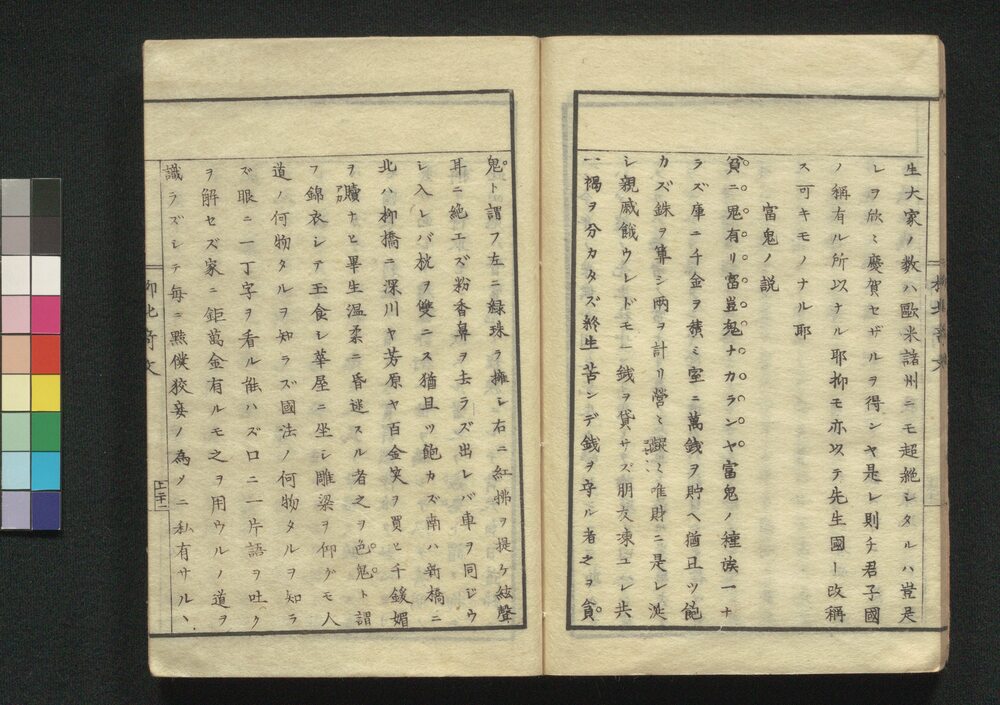 生大家ノ数ハ歐米諸州ニモ超絶シタルハ豈是
レヲ欣ミ慶賀セザルヲ得ンヤ是レ則チ君子國
ノ稱有ル所以ナル耶抑モ亦以テ先生國ト改稱
ス可キモノナル耶
富鬼ノ説
貧ニ鬼有リ富豈鬼ナカランヤ富鬼ノ種族一ナ
ラズ庫ニ千金ヲ積ミ室ニ萬銭ヲ貯ヘ猶且ツ飽
カズ銖ヲ算シ兩ヲ計リ營々齷々唯財ニ是レ涎
シ親戚餓ウレドモ一銭ヲ貸サズ朋友凍ユレ共
一褐ヲ分カタズ終生苦ンデ銭ヲ守ル者之ヲ貪
鬼ト謂フ左ニ緑珠ヲ擁シ右ニ紅拂ヲ提ケ絃聲
耳ニ絶エズ粉香鼻ヲ去ラズ出レバ車ヲ同ジウ
シ入レバ枕ヲ雙ニス猶且ツ飽カズ南ハ新橋ニ
北ハ柳橋ニ深川ヤ芳原ヤ百金笑ヲ買ヒ千鍰媚
ヲ贖ナヒ畢生温柔ニ昏迷スル者之ヲ色鬼ト謂
フ錦衣シテ玉食シ華屋ニ坐シ雕梁ヲ仰グモ人
道ノ何物タルヲ知ラズ國法ノ何物タルヲ知ラ
ズ眼ニ一丁字ヲ看ル能ハズ口ニ一片語ヲ吐ク
ヲ解セズ家ニ鉅萬金有ルモ之ヲ用ウルノ道ヲ
識ラズシテ毎ニ黠僕狡妾ノ為メニ私有サル丶
上二十二